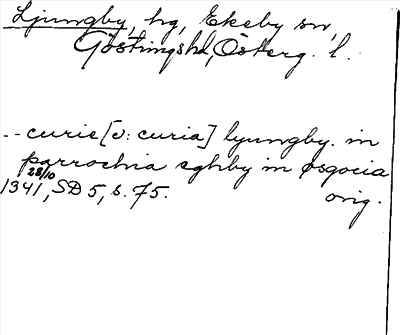 Ljungby, hg, Ekeby sn,
Göstringshd, Österg. l.
-- curie [ɔ: curia] lyungby. in
parrochia eghby in osgocia
28/10
1341, SD 5, s. 75. orig.